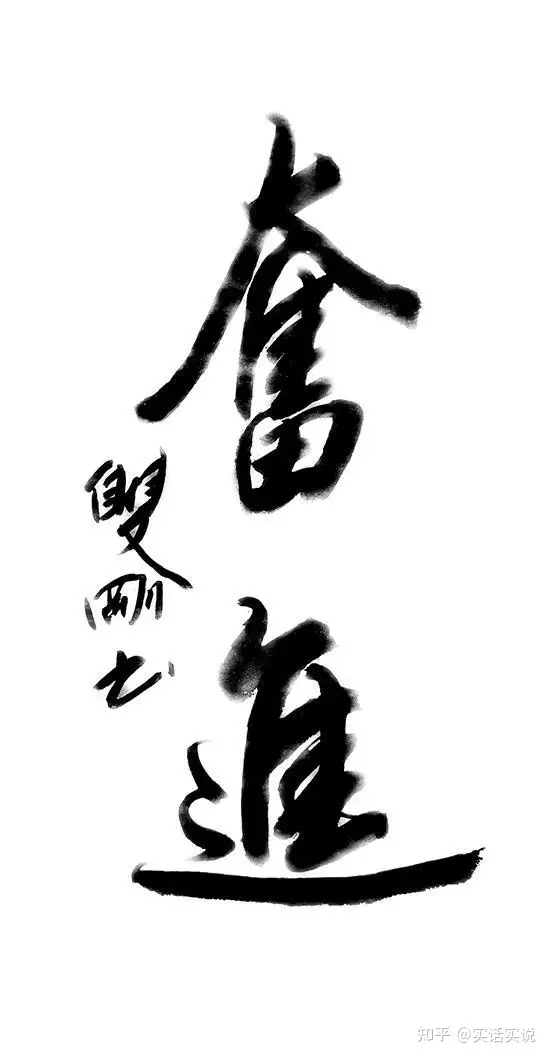 奮進
雙剛书
知乎 @实话实说